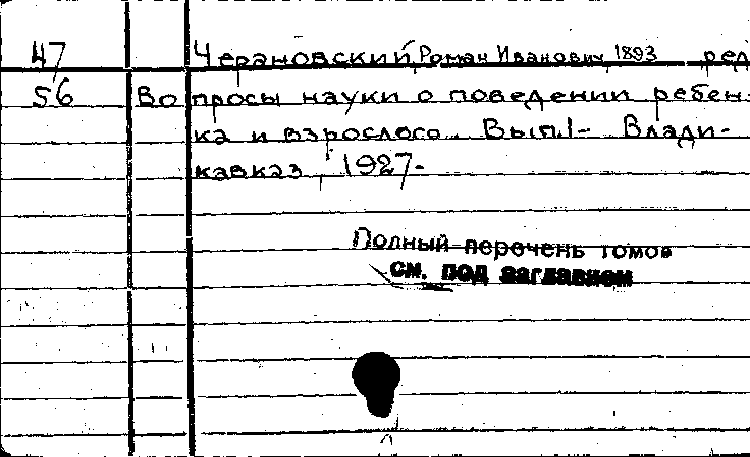 47 Черановский, Роман Иванович, 1893 ред
56 Вопросы науки о поведении ребен-
ка и взрослого. Вып.1- Влади-
кавказ, 1927-
Полный перечень томов
см. под заглавием